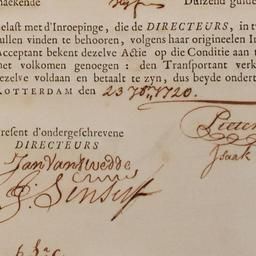 nakende Duizend gulde
elast met d'Inroepinge, die de DIRECTEURS, in t
ullen vinden te behooren, volgens haar origineelen In
Acceptant bekent dezelve Actie op die Conditie aan t
met volkomen genoegen: den Transportant verk
ezelve voldaan en betaalt te zyn, dus beyde ondert
ROTTERDAM den 23 1720.
Pieter
Jsaak
resent d'ondergeschrevene
DIRECTEURS
Jan van